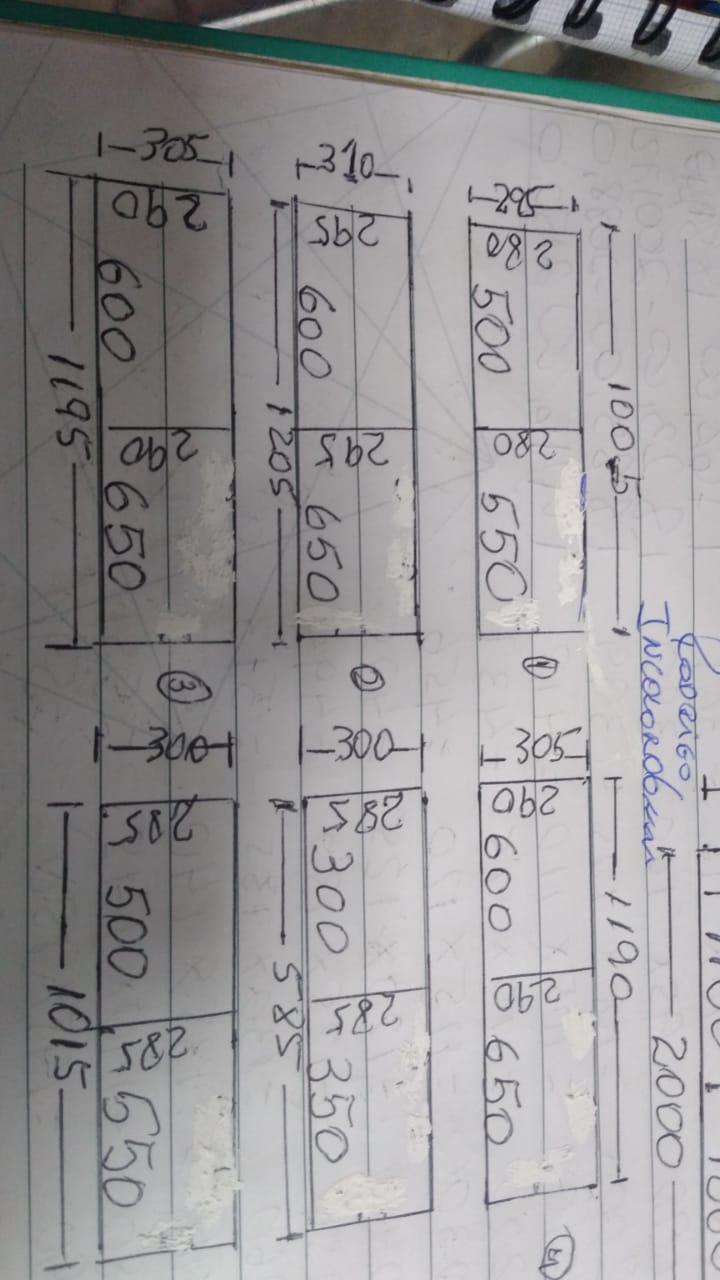 2000
Rodrigo
INCOLOR
1005 1190
295 280 500 280 550 ① 305 290 600 290 650
310 295 600 295 650 ② 300 285 300 285 350
1205 585
305 290 600 290 650 ③ 300 285 500 285 550
1195 1015